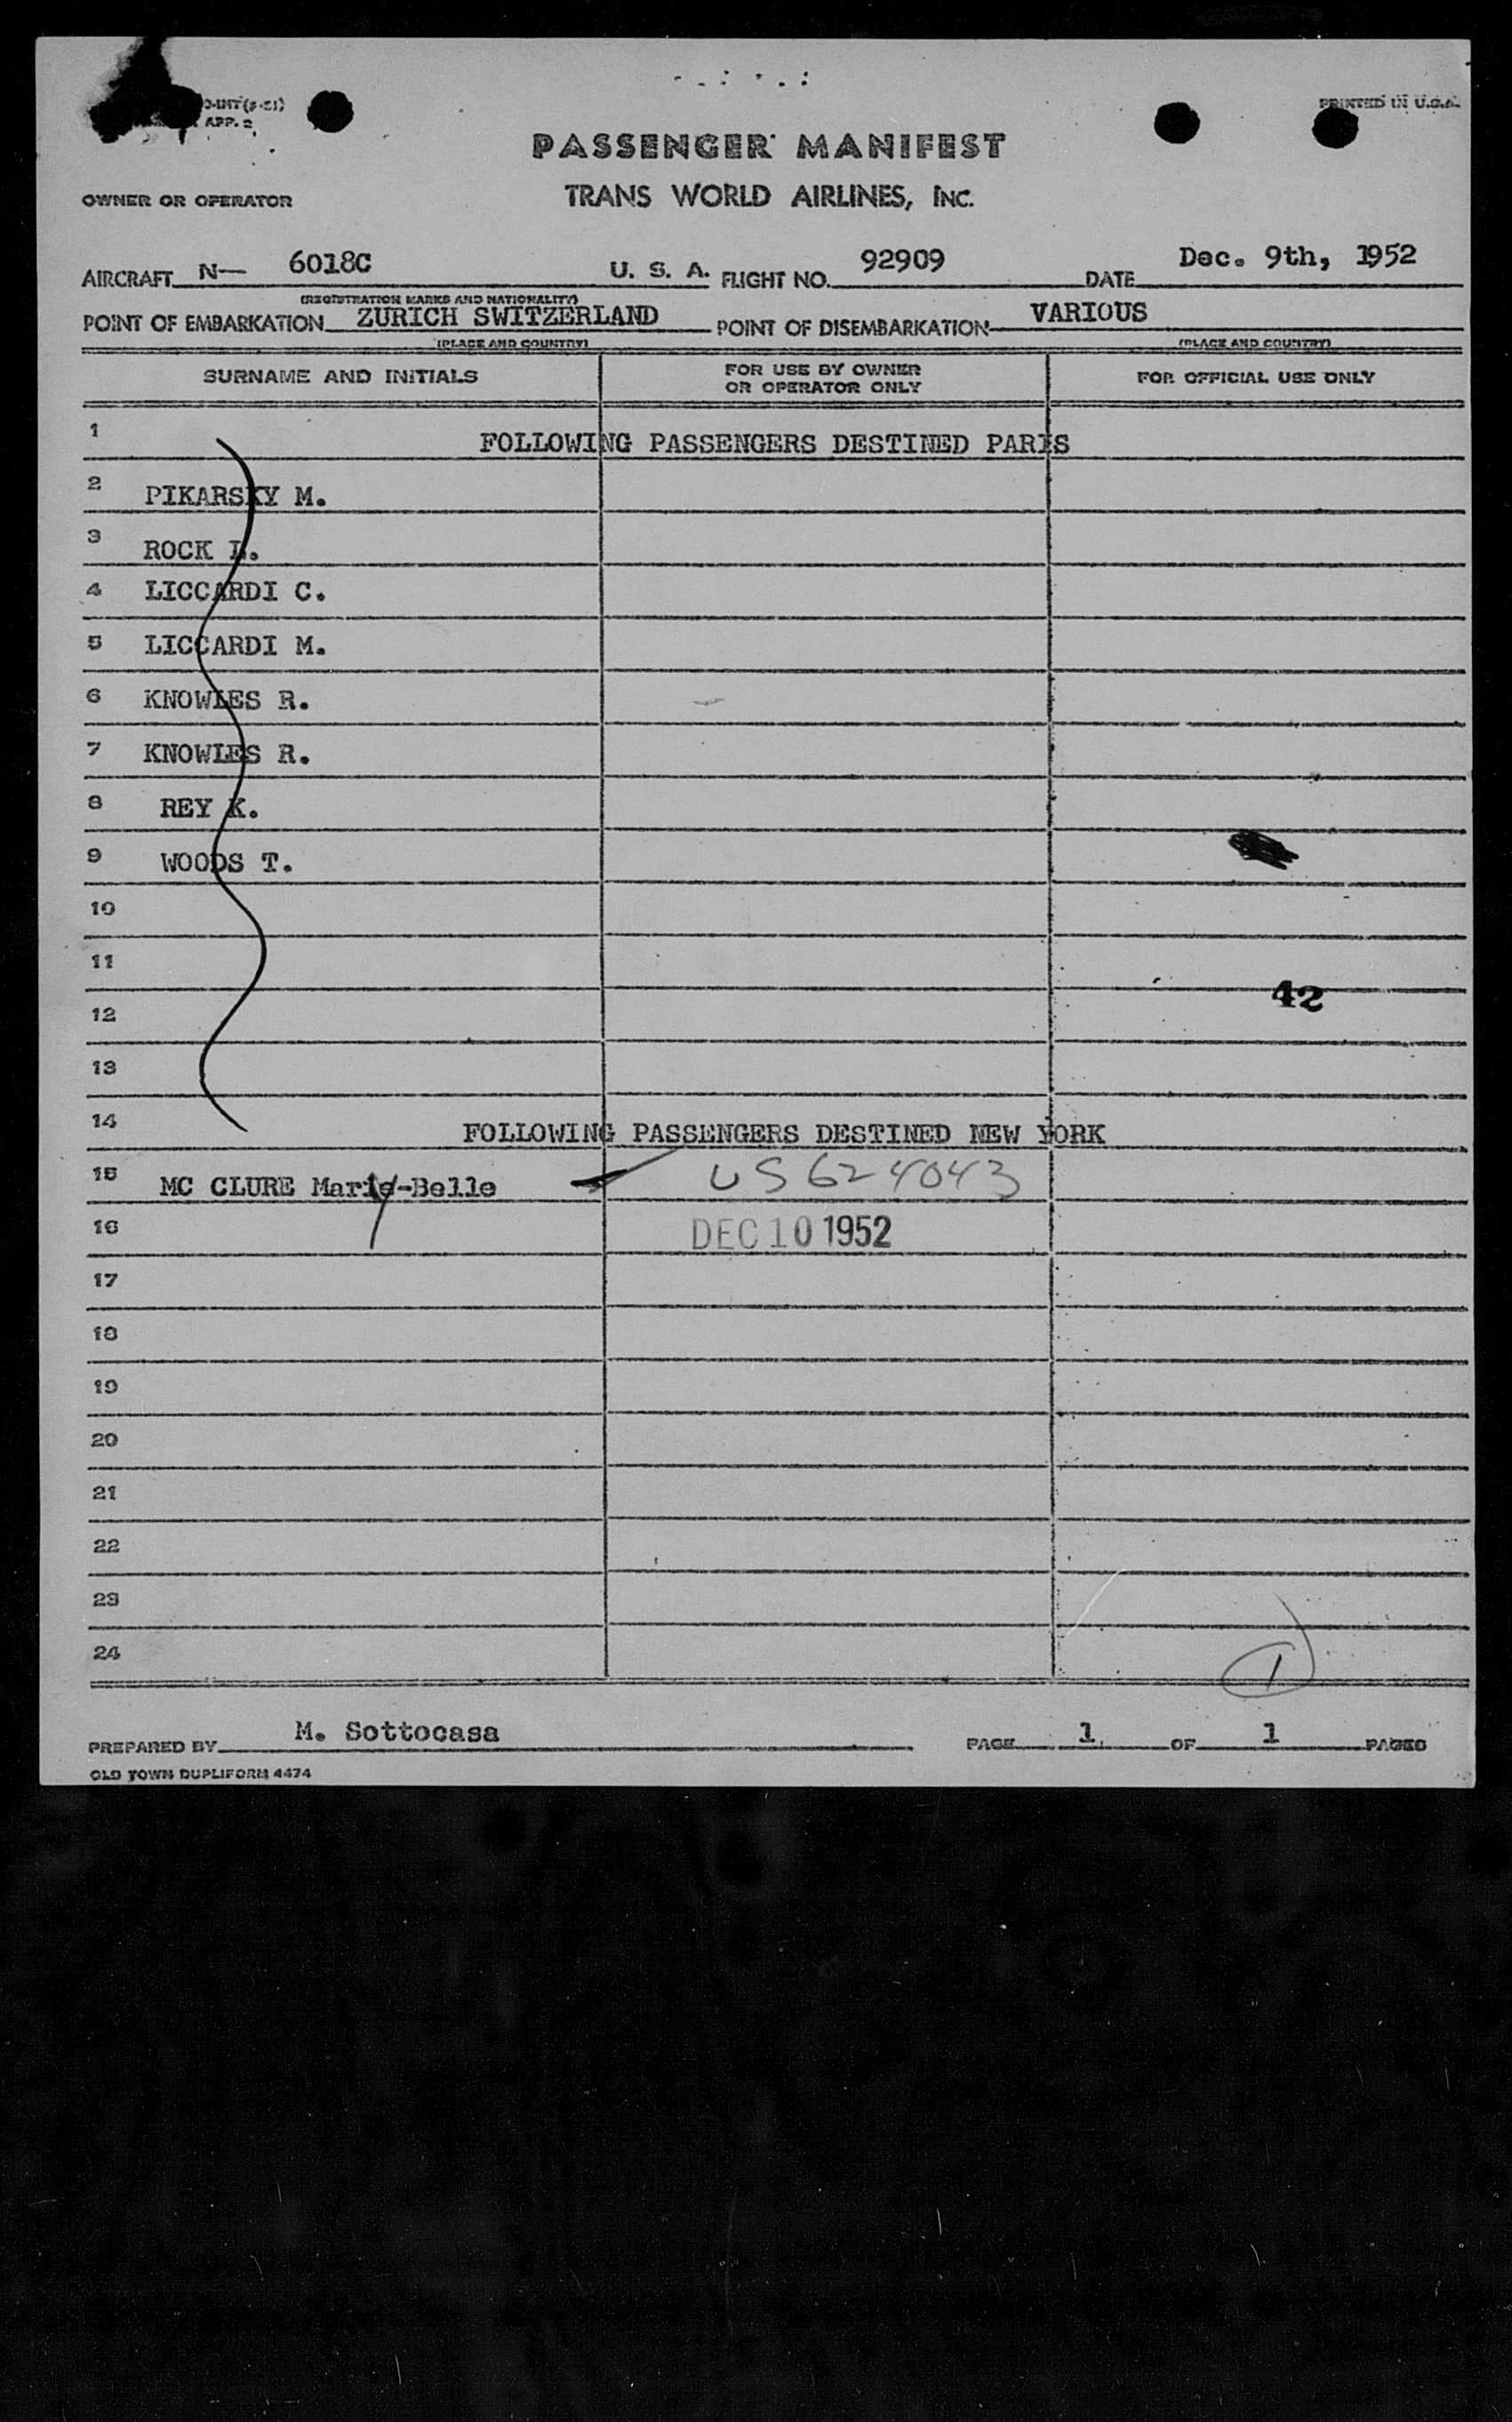 O-INT (5-51)
APP. 2
PRINTED IN U.S.A.
PASSENGER MANIFEST
OWNER OR OPERATOR
TRANS WORLD AIRLINES, INC.
AIRCRAFT N— 6018C U. S. A. FLIGHT NO. 92909 DATE Dec. 9th, 1952
(REGISTRATION MARKS AND NATIONALITY)
POINT OF EMBARKATION ZURICH SWITZERLAND POINT OF DISEMBARKATION VARIOUS
(PLACE AND COUNTRY) (PLACE AND COUNTRY)
SURNAME AND INITIALS FOR USE BY OWNER OR OPERATOR ONLY FOR OFFICIAL USE ONLY
1 FOLLOWING PASSENGERS DESTINED PARIS
2 PIKARSKY M.
3 ROCK L.
4 LICCARDI C.
5 LICCARDI M.
6 KNOWLES R.
7 KNOWLES R.
8 REY K.
9 WOODS T.
10
11
42
12
13
14 FOLLOWING PASSENGERS DESTINED NEW YORK
15 MC CLURE Mary-Belle US 624043
16 DEC 10 1952
17
18
19
20
21
22
23
24
1
PREPARED BY M. Sottocasa PAGE 1 OF 1 PAGES
OLD TOWN DUPLIFORM 4474